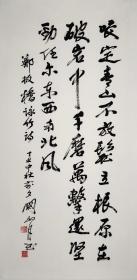 咬定青山不放鬆立根原在
破岩中千磨萬擊還堅
勁任尔东西南北风
鄭板橋詠竹詩
中秋前夕